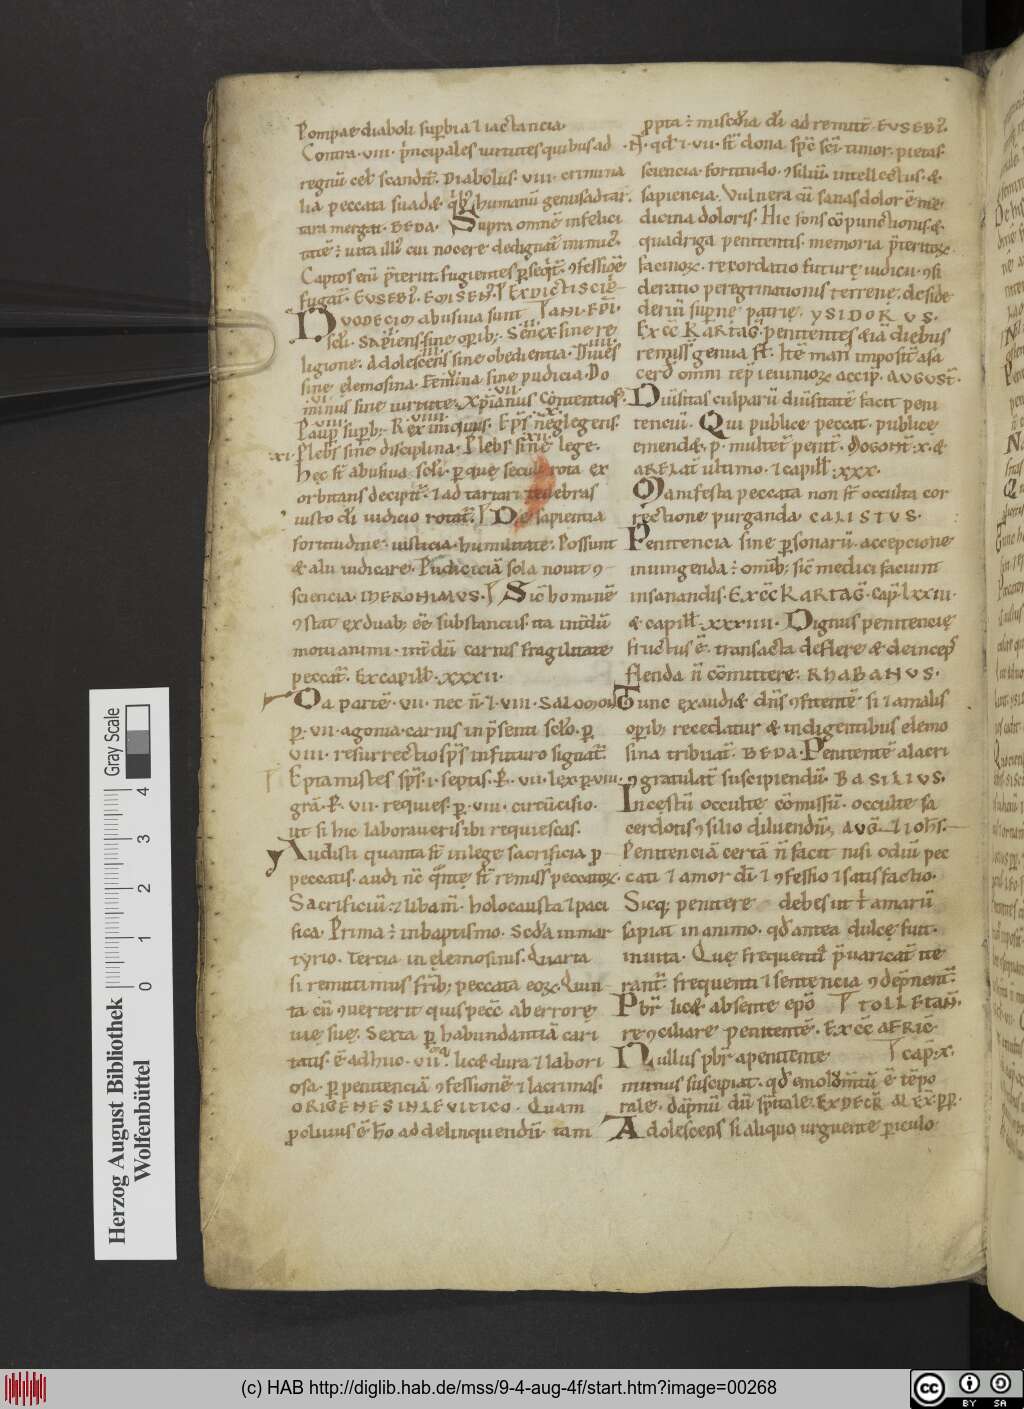 Pompae diaboli suꝑbia ⁊ iactancia.
Contra .viii. p̄ncipales uirtutes quibus ad
regnū cel̄ scandit̄. Diabolus .viii. crimina
lia peccata suadæ. humanū genus ad tar.
tara mergit. BEDA. Supra omnē infelici
tatē : uita illi cui nocere dedignat̄ inimic̄.
Captos enī p̄terit. fugientes ꝑseq̄t̄. ꝯfessiōe
fugat̄. EUSEB̄.
DUODECIM abusiua sunt
sc̄li. SAPIENS sine oꝑib; Senex sine re
ligione. Adolescens sine obedientia. Diues
sine ęlemosina. Femina sine pudicia. Do
minus sine uirtute. Xp̄ianus contentios̄.
Paup̄ suꝑb; Rex iniquus. Ep̄s neglegens.
.xi. Plebs sine disciplina. Plebs sine lege.
Hęc st̄ abusiua sc̄li. ꝑ quę seculi rota ex
orbitans decipit̄. ⁊ ad tartari tenebras
iusto dī iudicio rotat̄. De sapientia
fortitudine. iusticia. humilitate. Possunt
& alii iudicare. Pudiciciā sola nouit ꝯ
sciencia. IHERONIMUS. Sic̄ hominē
ꝯstat ex duab; eē substanciis. ita int̄dū
motu animi. int̄dū carnis fragilitate
peccat̄. Ex capitl̄ .xxxii.
Da partē .vii. nec n̄ ⁊ viii. SALOMON
ꝑ .vii. agonia carnis in p̄senti sc̄lo. ꝑ
viii. resurrectio sp̄s in futuro signat̄.
Eptamistes sp̄s .i. septis. R̄. vii. lex ꝑ viii.
grā. R̄. vii. requies. ꝑ .viii. circūcisio.
ut si hic laboraueris ibi requiescas.
Audisti quanta st̄ in lege sacrificia ꝑ
peccatis. audi nc̄ q̄nte st̄ remiss̄ peccatoꝝ.
Sacrificiū : ⁊ libam̄. holocausta ⁊ paci
fica. Prima : in baptismo. Sc̄da in mar
tyrio. Tertia in ęlemosinis. Quarta
si remittimus fr̄ib; peccata eoꝝ. Quin
ta cū ꝯuerterit quis pecc̄ ab errore
uię suę. Sexta ꝑ habundantiā cari
tatis. ē adhuc. vii. licæ dura ⁊ labori
osa. ꝑ penitenciā ꝯfessionē ⁊ lacrimas.
ORIGENES IN LEVITICO. Quam
ꝓliuus ē hō ad delinquendū. tam
ꝓpta : miscd̄ia dī ad remitt̄. EUSEB̄.
N̄. qd̄ ⁊ .vii. st̄ dona sp̄c sc̄i. timor. pietas.
sciencia. fortitudo. ꝯsiliū. intellectus. &
sapiencia. Vulnera cū sanas dolor ē me
dicina doloris. Hic fons cōpunctionis. &
quadriga penitentis. memoria p̄teritoꝝ
facinoꝝ. recordatio futurę iudicii. ꝯsi
deratio peregrinationis terrene. deside
deriū supne patrię. YSIDORUS.
Excc̄ Kartaḡ. penitentes & iā diebus
remiss̄ genua fl̄. Itē man̄ impositē a sa
cerd̄ omni tēp ieiunioꝝ accip̄. AUGUST̄.
Diūsitas culparū diūsitatē facit peni
tenciū. Qui publice peccat. publice
emendæ. ꝑ multet̄ penit̄. MOGONT̄. x. &
ARELAT̄ ultimo. ⁊ capitl̄ : xxx.
Manifesta peccata non st̄ occulta cor
rectione purganda. CALISTUS.
Penitencia sine ꝑsonarū. accepcione
iniungenda : omīb; sic̄ medici faciunt
in sanandis. Excc̄ Kartaḡ. cap̄. lxxiii.
& capitl̄. xxxiiii. Dignus penitencię
fructus ē. transacta deflere & deinceps
flenda n̄ cōmittere. RHABANUS.
Tunc exaudiæ dn̄s ꝯfitentē si ⁊ a malis
oꝑib; recedatur & indigentibus elemo
sina tribuat̄. BEDA. Penitentē alacri
ꝯgratulat̄ suscipiendū. BASILIUS.
Incestū occulte cōmissū. occulte sa
cerdotis ꝯsilio diluendū. AUḠ. ⁊ Ioh̄s.
Penitenciā certā n̄ facit nisi odiū pec
cati ⁊ amor dī ⁊ ꝯfessio ⁊ satisfactio.
Sicq; penitere debes ut t̄ amarū
sapiat in animo. qd̄ antea dulce fuit
in uita. Quę frequentit̄ p̄uaricat̄ ite
rant̄. frequenti ⁊ sentencia ꝯdep̄nent̄.
Pbr̄ licæ absente ep̄o TOLLETAN̄.
reꝯciliare penitentē. Excc̄ AFRIC̄.
Nullus pbr̄ a penitente cap̄. x.
munus suscipiat. qd̄ emolum̄tū ē tēpo
rale. dāpnū dū sp̄itale.
Adolescens si aliquo urguente ꝑiculo
Gray Scale
0 1 2 3 4
Herzog August Bibliothek
Wolfenbüttel
(c) HAB http://diglib.hab.de/mss/9-4-aug-4f/start.htm?image=00268
cc BY SA